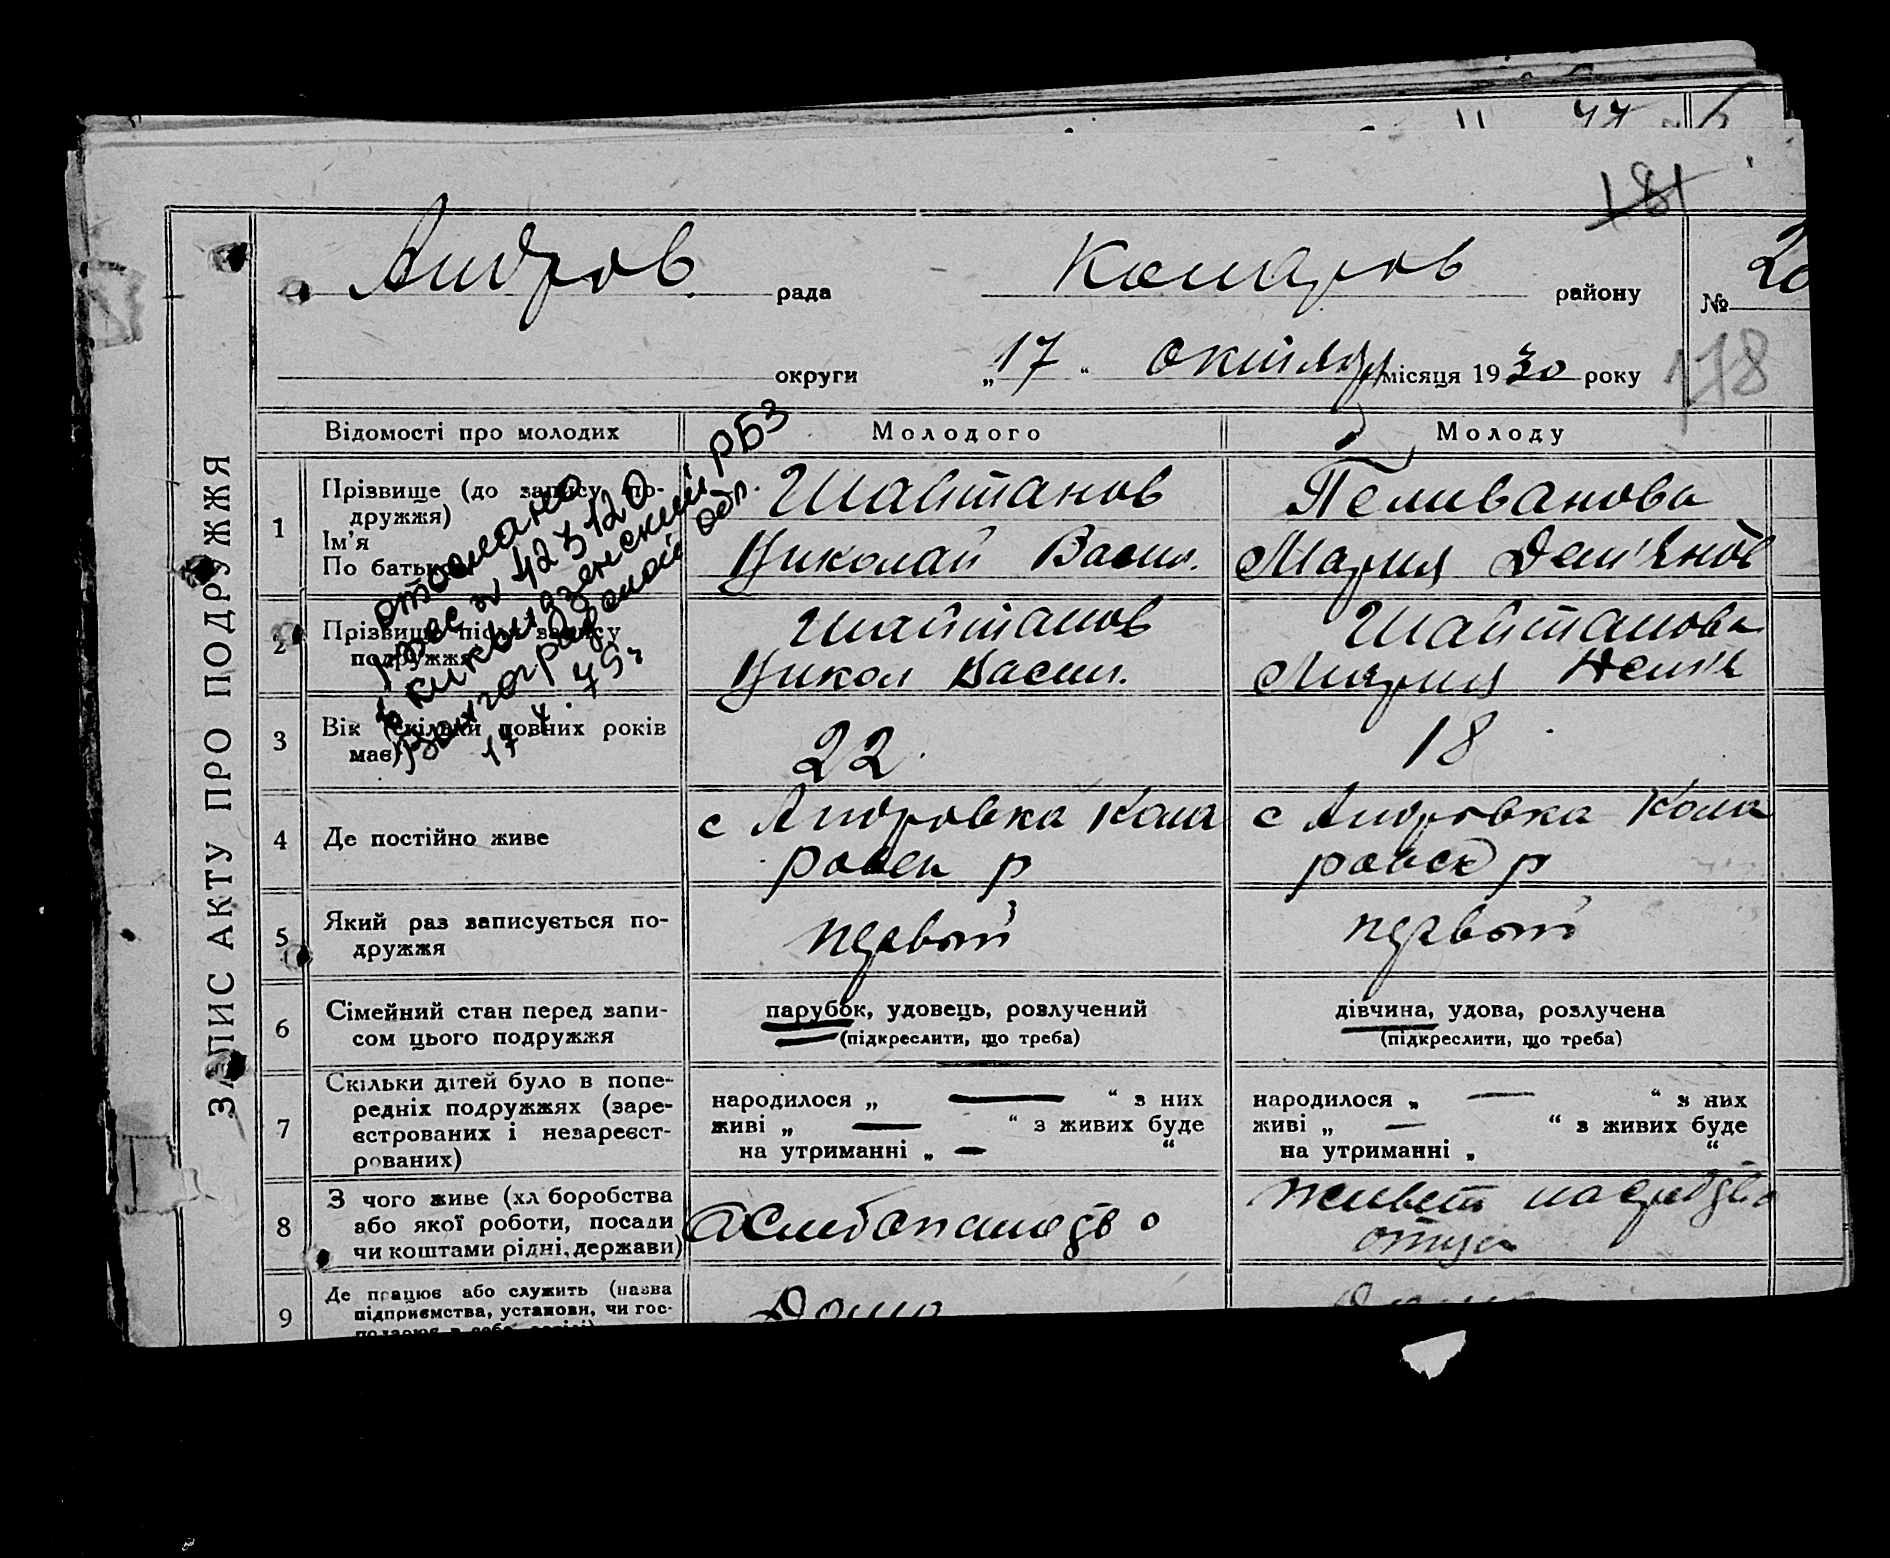 181
Андров рада Комаров району № 20
округи „17“ октября місяця 1930 року
178
ЗАПИС АКТУ ПРО ПОДРУЖЖЯ
Відомості про молодих Молодого Молоду
1 Прізвище (до запису по-
дружжя)
Ім'я
По батькові
Шайтанов
Николай Васил.
Пеливанова
Мария Дем'янов
2 Прізвище після запису
подружжя
Шайтанов
Никол Васил.
Шайтанова
Мария Дем'я
3 Вік (скільки повних років
має)
22
18
17 4. 75 г
4 Де постійно живе
с Андровка Кома
ровск р
с Андровка Кома
ровск р
5 Який раз записується по-
дружжя
первый
первый
6 Сімейний стан перед запи-
сом цього подружжя
парубок, удовець, розлучений
(підкреслити, що треба)
дівчина, удова, розлучена
(підкреслити, що треба)
7 Скільки дітей було в попе-
редніх подружжях (заре-
єстрованих і незареєст-
рованих)
народилося „ — “ з них
живі „ — “ з живих буде
на утриманні „ — “
народилося „ — “ з них
живі „ — “ з живих буде
на утриманні „ “
8 З чого живе (хлiборобства
або якої роботи, посади
чи коштами рідні, держави)
Живет на средства
отца
9 Де працює або служить (назва
підприємства, установи, чи гос-
Дома